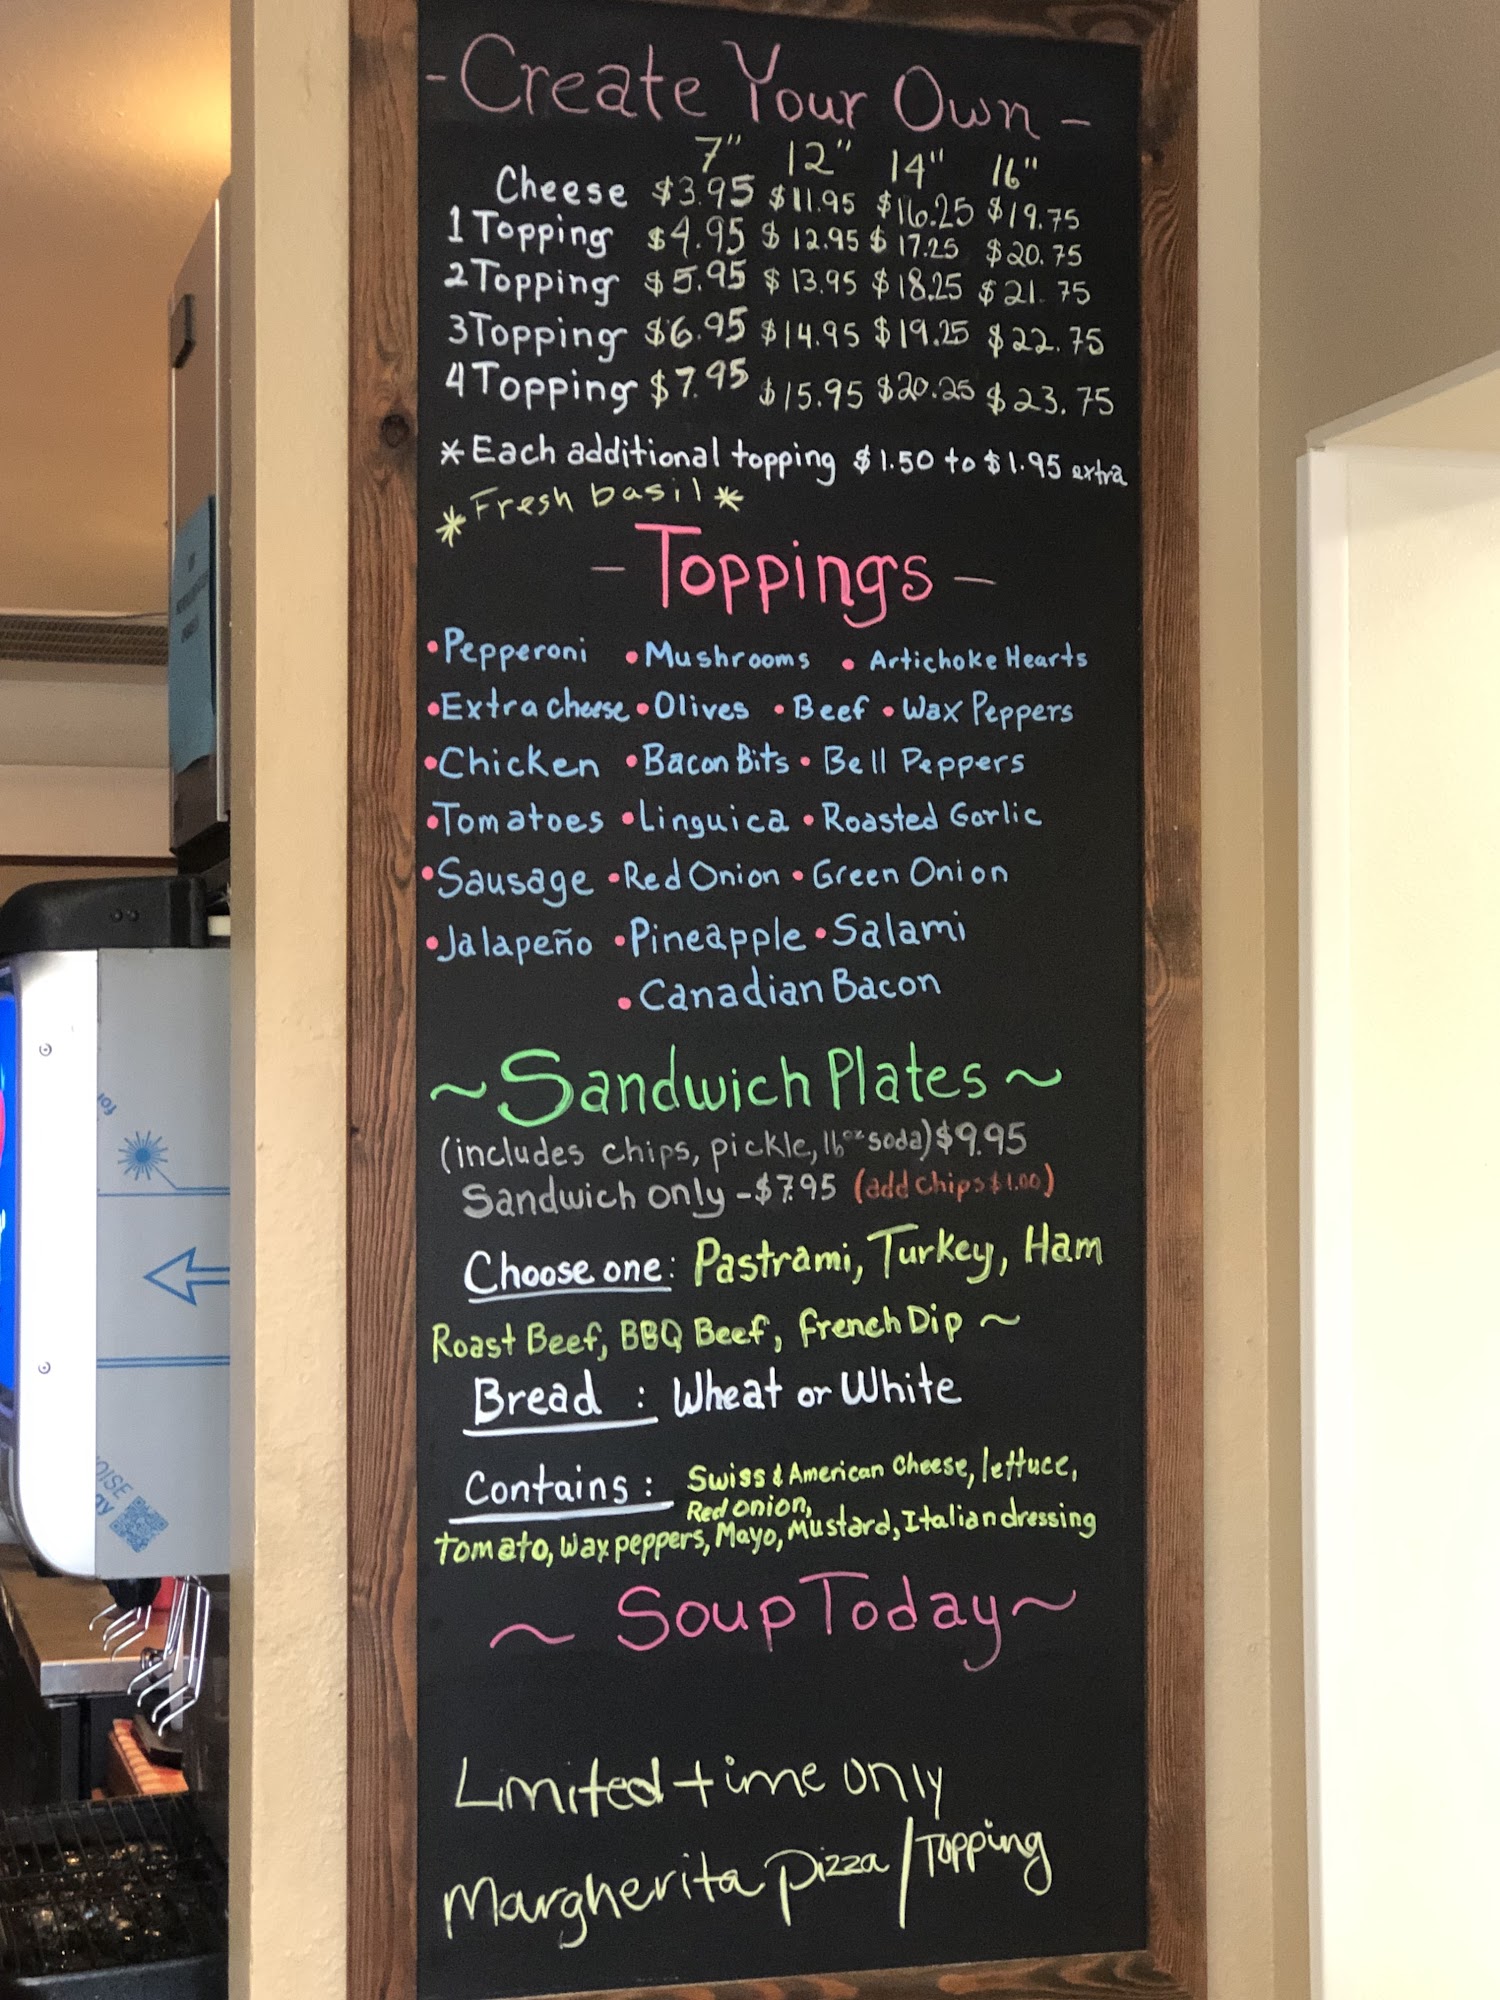 - Create Your Own -
7" 12" 14" 16"
Cheese $3.95 $11.95 $16.25 $19.75
1 Topping $4.95 $12.95 $17.25 $20.75
2 Topping $5.95 $13.95 $18.25 $21.75
3 Topping $6.95 $14.95 $19.25 $22.75
4 Topping $7.95 $15.95 $20.25 $23.75
*Each additional topping $1.50 to $1.95 extra
*Fresh basil*
- Toppings -
•Pepperoni •Mushrooms •Artichoke Hearts
•Extra cheese •Olives •Beef •Wax Peppers
•Chicken •Bacon Bits •Bell Peppers
•Tomatoes •Linguica •Roasted Garlic
•Sausage •Red Onion •Green Onion
•Jalapeño •Pineapple •Salami
•Canadian Bacon
~Sandwich Plates~
(includes chips, pickle, 16oz soda) $9.95
Sandwich only - $7.95 (add chips $1.00)
Choose one: Pastrami, Turkey, Ham
Roast Beef, BBQ Beef, French Dip ~
Bread : Wheat or White
Contains: Swiss & American Cheese, lettuce,
Red onion,
Tomato, Wax peppers, Mayo, Mustard, Italian dressing
~ Soup Today ~
Limited time only
Margherita pizza / Topping